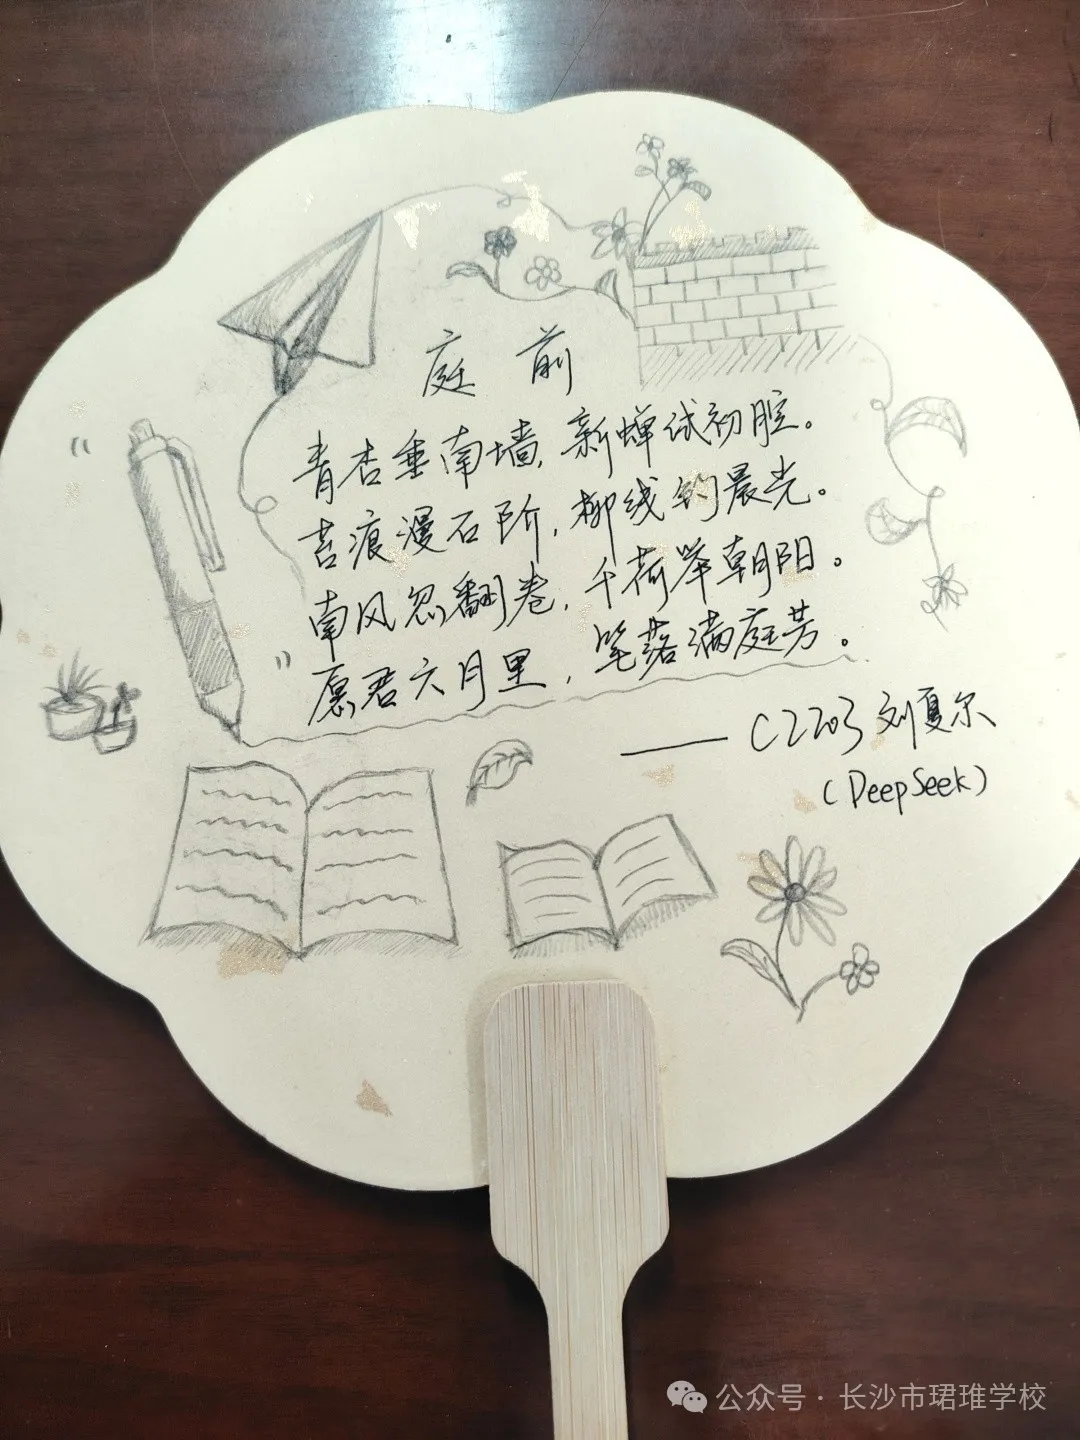 庭前
青杏垂南墙,新蝉试初腔。
苔痕漫石阶,柳线钓晨光。
南风忽翻卷,千荷举朝阳。
愿君六月里,笔落满庭芳。
——C2203 刘夏尔
(DeepSeek)
公众号·长沙市珺琟学校